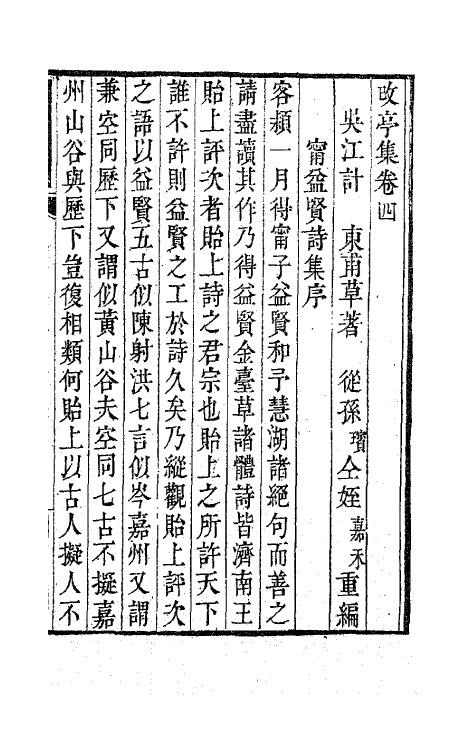 改亭集卷四
吳江計　東甫草著　從孫璸仝姪嘉禾重編
甯益賢詩集序
客潁一月得甯子益賢和予慧湖諸絕句而善之
請盡讀其作乃得益賢金臺草諸體詩皆濟南王
貽上評次者貽上詩之君宗也貽上之所許天下
誰不許則益賢之工於詩久矣乃縱觀貽上評次
之語以益賢五古似陳射洪七言似岑嘉州又謂
兼空同歷下又謂似黃山谷夫空同七古不擬嘉
州山谷與歷下豈復相類何貽上以古人擬人不